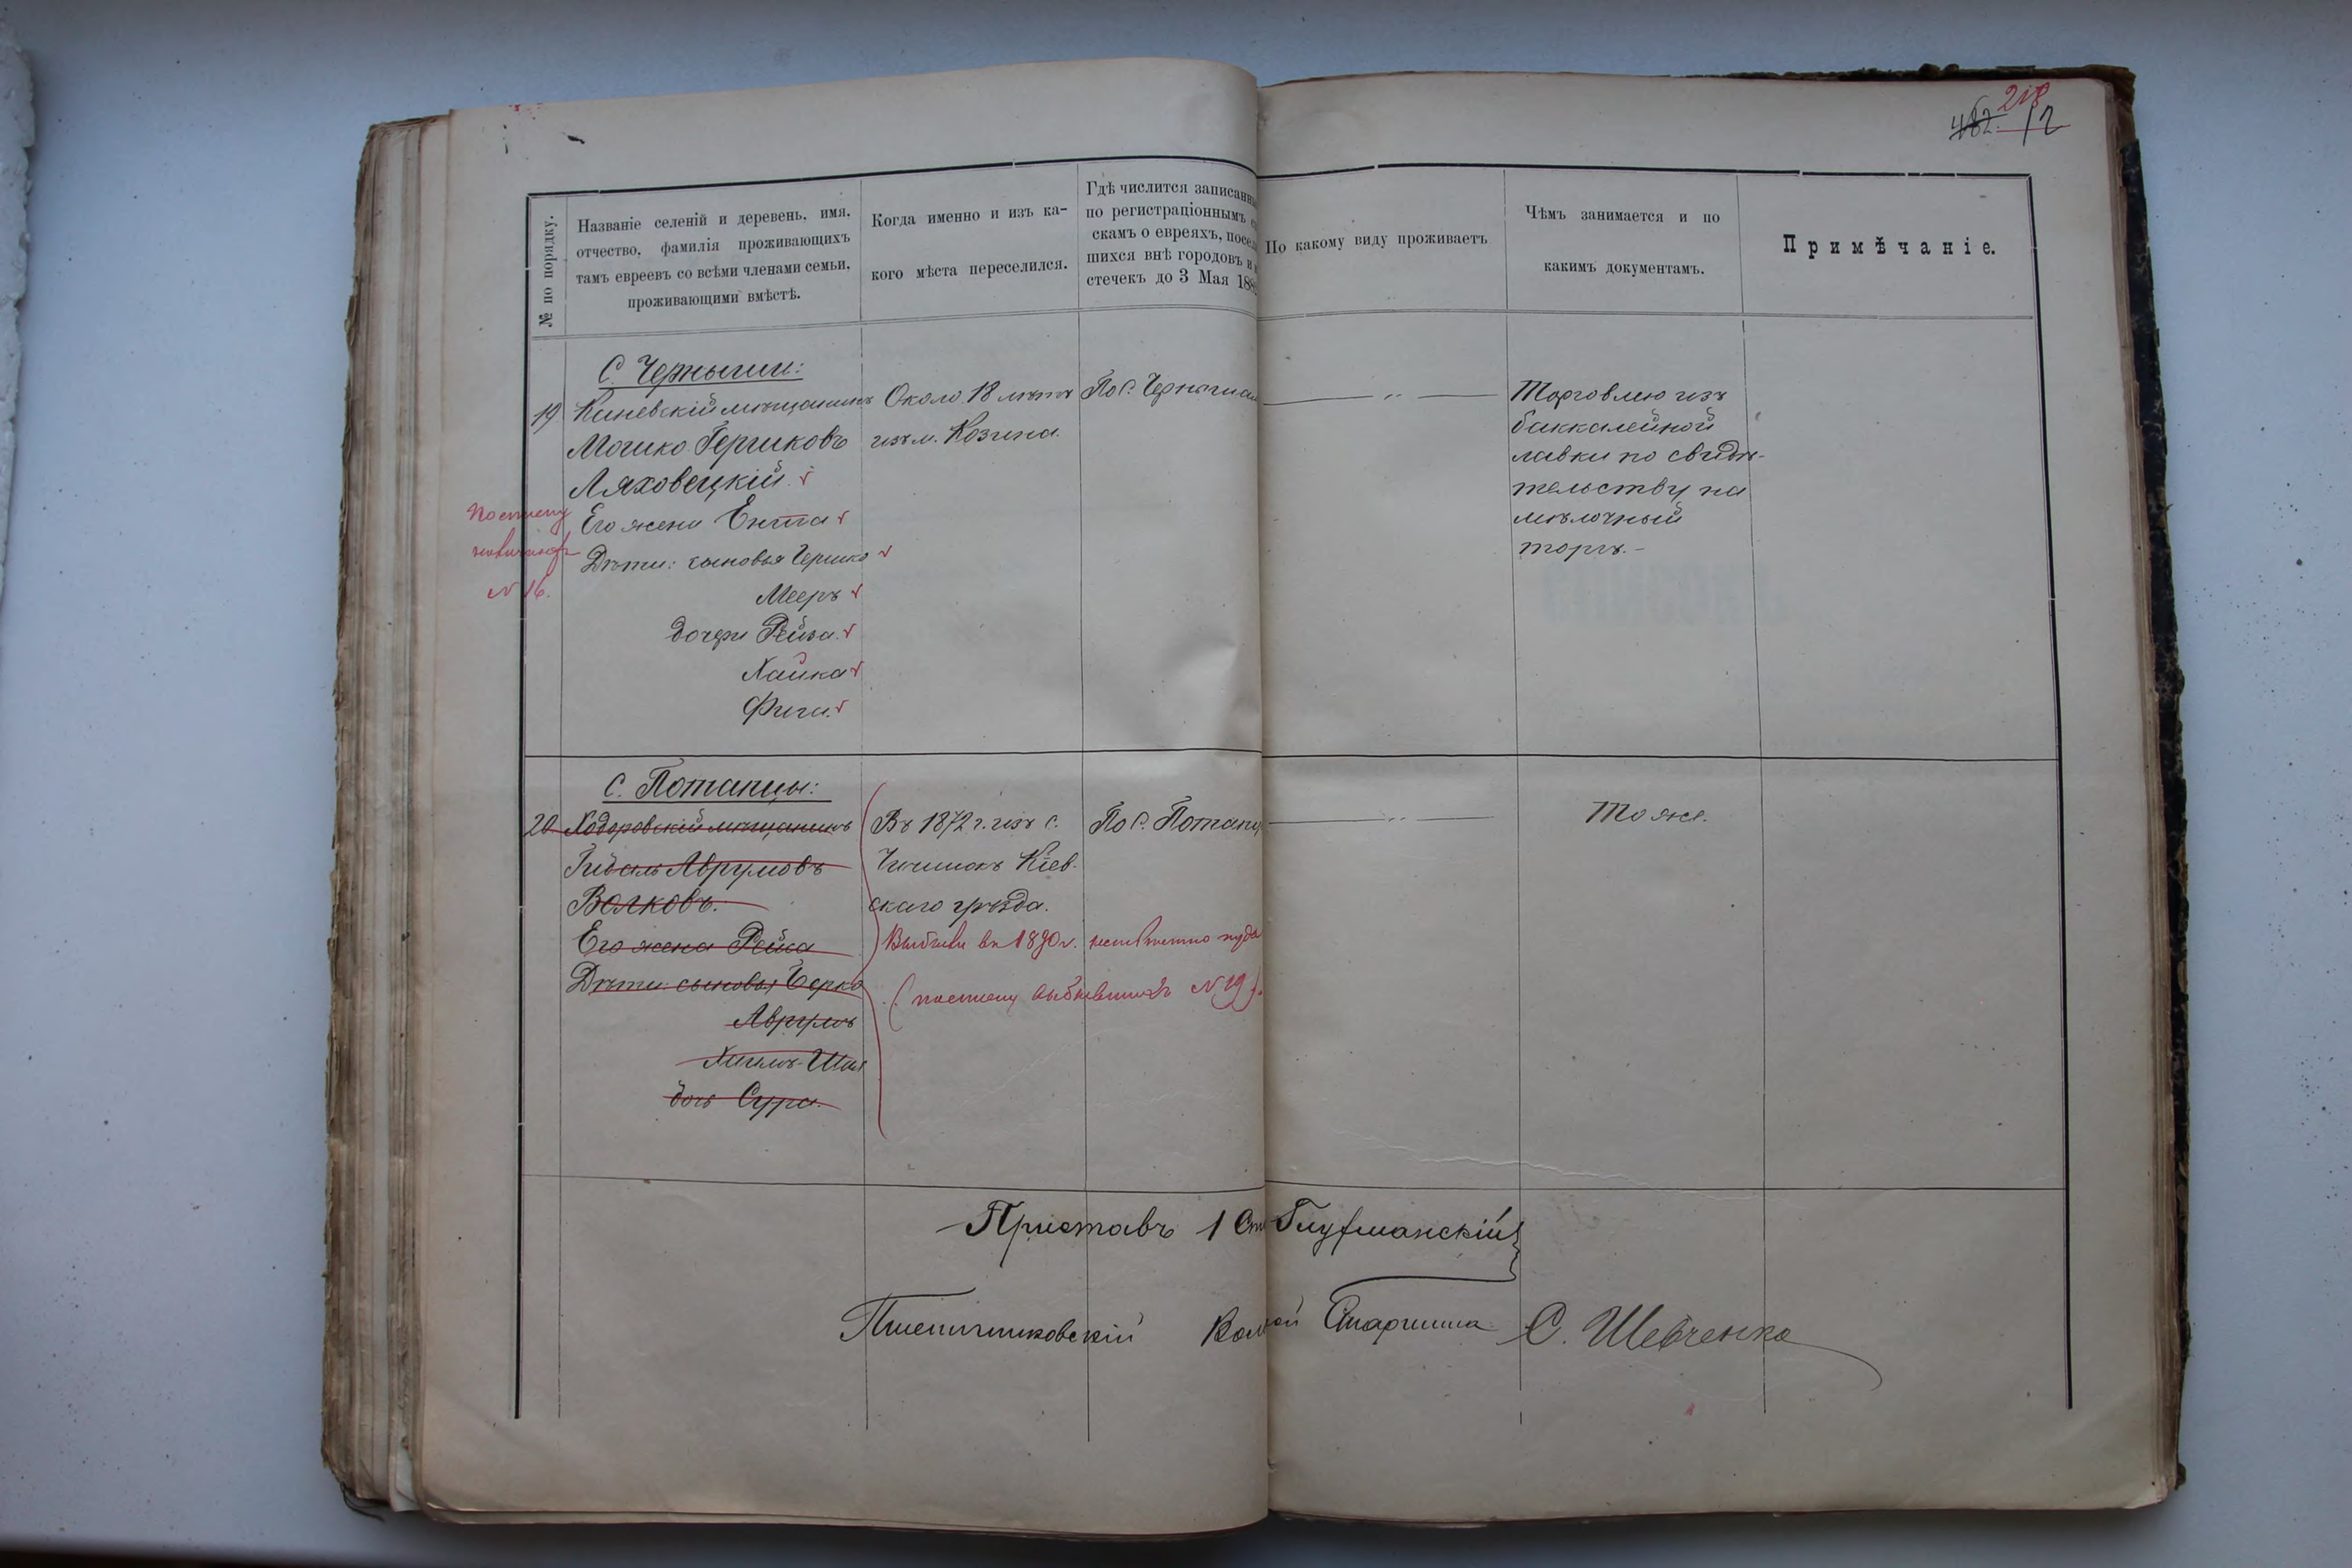 218
482. 12
№ по порядку.
Названіе селеній и деревень, имя,
отчество, фамилія проживающихъ
тамъ евреевъ со всѣми членами семьи,
проживающими вмѣстѣ.
Когда именно и изъ ка-
кого мѣста переселился.
Гдѣ числится записанны
по регистраціоннымъ
скамъ о евреяхъ, посел
шихся внѣ городовъ и
стечекъ до 3 Мая 188
По какому виду проживаетъ
Чѣмъ занимается и по
какимъ документамъ.
Примѣчаніе.
С. Чернышии:
19
Каневскій мѣщанинъ
Мошко Гершковъ
Ляховецкій
Его жена Ента
Дѣти: сыновья Гершко
Мееръ
дочери Рейза
Хайка
Фига
По
№ 16.
Около 18 лѣтъ
изъ м. Козина.
По С.
— " —
Торговлею изъ
баккалейной
лавки по свидѣ-
тельству на
мѣлочный
торгъ.-
С. Потапцы:
20
Ходоровскій мѣщанинъ
Гидаль Аврумовъ
Волковъ.
Его жена Рейза
Дѣти: сыновья Берко
Аврумъ
Хаимъ-Шая
дочь Сура.
Въ 1872 г. изъ с.
Кіев-
скаго уѣзда.
Выбыли въ 1890 г. неизвѣстно куда
( выбывшихъ № 19).
По С. Потапц
— " —
Тоже.
Приставъ 1 Ст
Пшеничниковскій Вол ной Старшина С. Шевченко